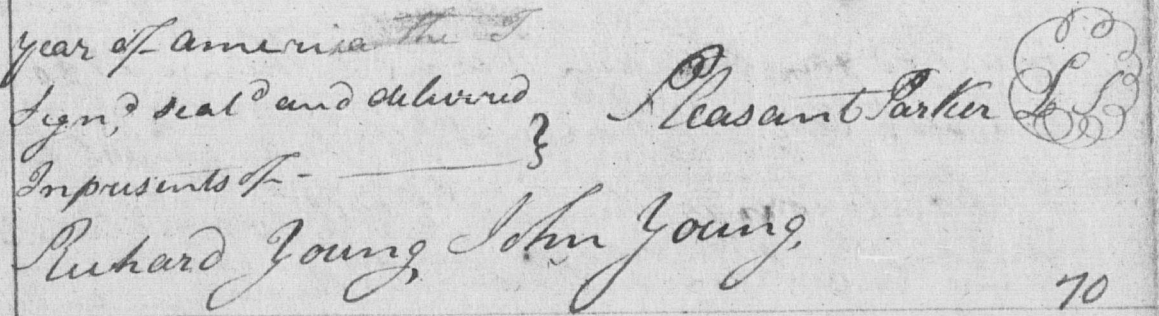 year of america the
Sign,d seal,d and delivered
Pleasant Parker LS
In presents of -
Richard Young, John Young,
70